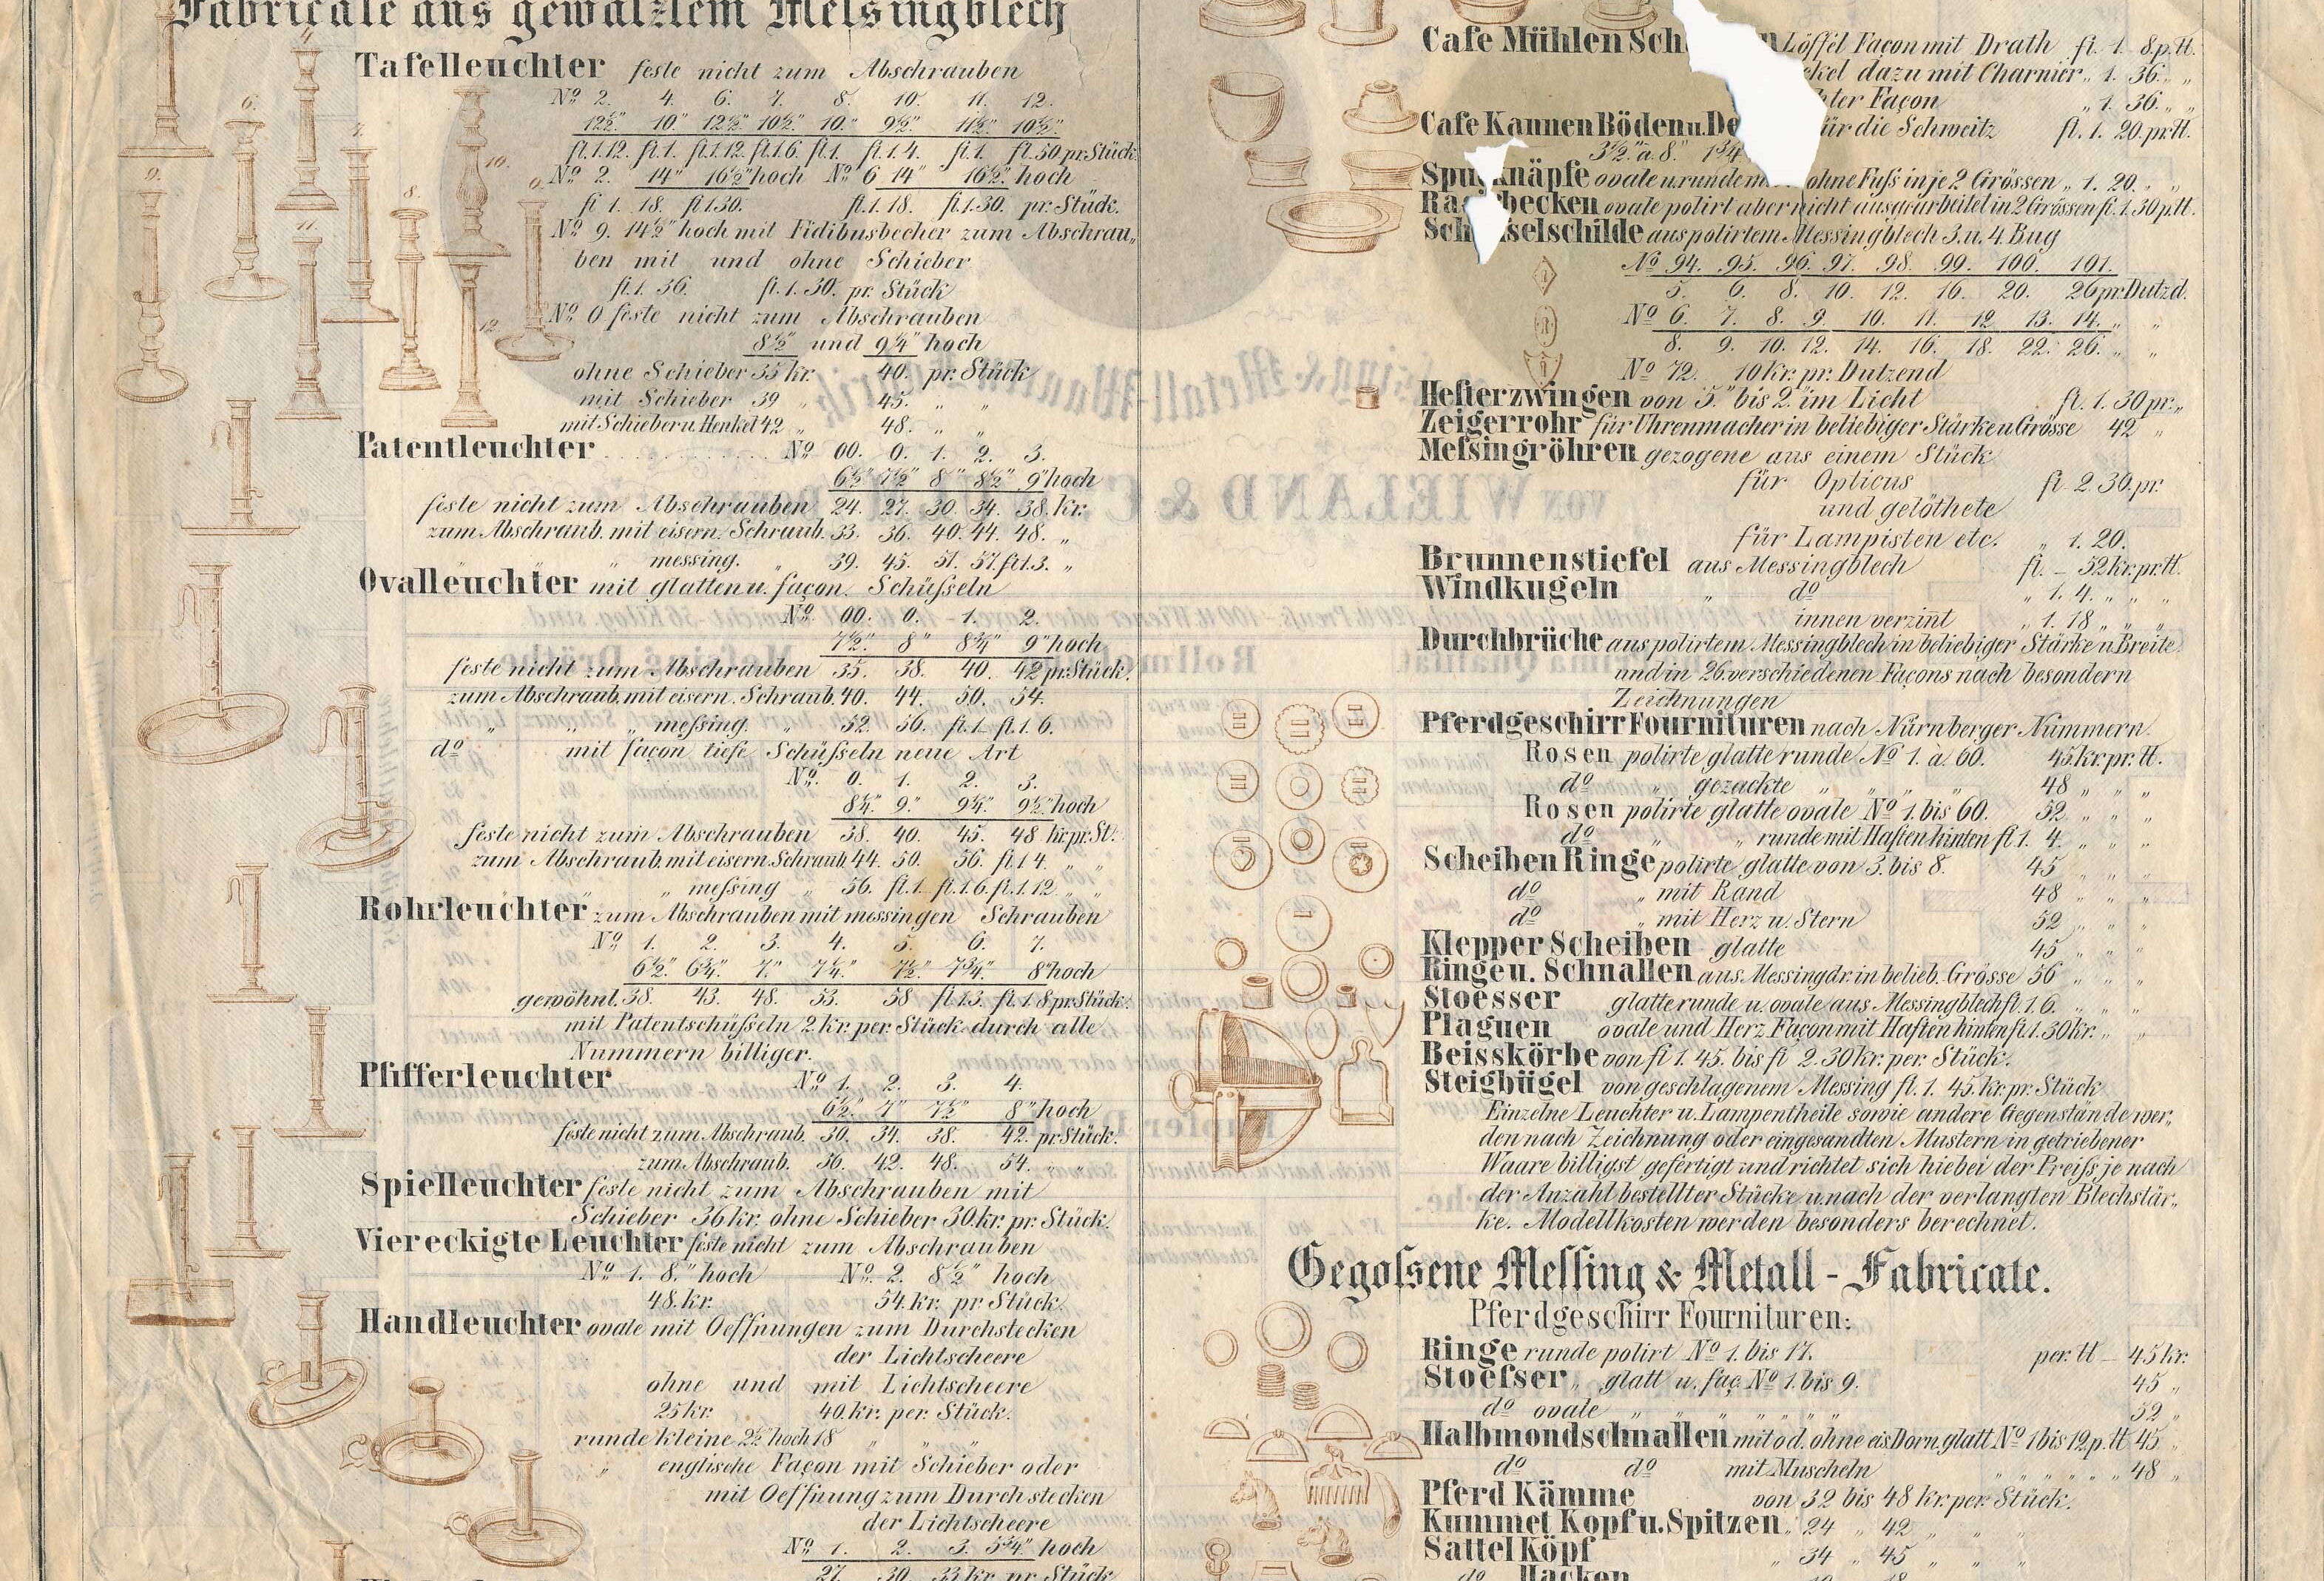 Fabricate aus gewalztem Messingblech
Tafelleuchter feste nicht zum Abschrauben
No 2. 4. 6. 7. 8. 10. 11. 12.
12½" 10" 12½" 10½" 10" 9½" 11½" 10½"
fl.1.12. fl.1. fl.1.12. fl.1.6. fl.1. fl.1.4. fl.1. fl.50 pr Stück.
No 2. 14" 16½" hoch No 6 14" 16½" hoch
fl 1. 18. fl 1.30. fl.1.18. fl.1.30. pr. Stück.
No 9. 14½" hoch mit Fidibusbecher zum Abschrau„
ben mit und ohne Schieber
fl.1. 36. fl.1.30. pr. Stück
No 0 feste nicht zum Abschrauben
8½" und 9¼" hoch
ohne Schieber 35 kr. 40. pr. Stück
mit Schieber 39 „ 45. „ „
mit Schieber u. Henkel 42 „ 48. „ „
Patentleuchter No 00. 0. 1. 2. 3.
6½" 7½" 8" 8½" 9" hoch
feste nicht zum Abschrauben 24. 27. 30. 34. 38. kr.
zum Abschraub. mit eisern. Schraub. 33. 36. 40. 44. 48. „
„ messing. „ 39. 45. 51. 57. fl.1.3. „
Ovalleuchter mit glatten u. façon. Schüsseln
No 00. 0. 1. 2.
7½" 8" 8¾" 9" hoch
feste nicht zum Abschrauben 35. 38. 40. 42 pr. Stück.
zum Abschraub. mit eisern. Schraub. 40. 44. 50. 54.
„ „ „ messing. „ 52. 56. fl.1. fl.1.6.
do mit façon tiefe Schüsseln neue Art
No. 0. 1. 2. 3.
8¼" 9" 9¼" 9½" hoch
feste nicht zum Abschrauben 38. 40. 45. 48 kr. pr. St.
zum Abschraub. mit eisern. Schraub 44. 50. 56. fl.1 4. „ „
„ „ messing „ 56. fl.1. fl.1.6. fl.1.12 „ „
Rohrleuchter zum Abschrauben mit messingen Schrauben
No 1. 2. 3. 4. 5. 6. 7.
6½" 6¾" 7" 7¼" 7½" 7¾" 8" hoch
gewöhnl. 38. 43. 48. 53. 58 fl.1.3. fl.1.8 pr Stück.
mit Patentschüsseln 2 kr. per Stück durch alle
Nummern billiger.
Pfifferleuchter No 1. 2. 3. 4.
6½" 7" 7½" 8" hoch
feste nicht zum Abschraub. 30. 34. 38. 42. pr Stück.
zum Abschraub. 36. 42. 48. 54. „ „
Spielleuchter feste nicht zum Abschrauben mit
Schieber 36 kr. ohne Schieber 30. kr. pr. Stück.
Viereckigte Leuchter feste nicht zum Abschrauben
No 1. 8." hoch No. 2. 8½" hoch
48. kr. 54. kr. pr Stück.
Handleuchter ovale mit Oeffnungen zum Durchstecken
der Lichtscheere
ohne und mit Lichtscheere
25 kr. 40. kr. per. Stück.
runde kleine 2½" hoch 18 „ „ „
„ englische Façon mit Schieber oder
mit Oeffnung zum Durchstecken
der Lichtscheere
No 1. 2. 3. 5¾" hoch
27. 30. 33 kr. pr Stück
Cafe Mühlen Löffel Façon mit Drath fl. 1. 8. p. tt.
dazu mit Charnier „ 1. 36. „ „
Façon „ 1. 36. „ „
Cafe Kannen Böden u. für die Schweitz fl. 1. 20. pr. tt.
3½" a 8."
ovale u. runde ohne Fuss in je 2 Grössen „ 1. 20. „ „
ovale polirt aber nicht ausgearbeitet in 2 Grössen fl. 1.30 p. tt.
aus polirtem Messingblech 3. u. 4. Bug
No 94. 95. 96. 97. 98. 99. 100. 101.
5. 6. 8. 10. 12. 16. 20. 26 pr Dutzd.
No 6. 7. 8. 9. 10. 11. 12 13. 14. „ „
8. 9. 10. 12. 14. 16. 18. 22. 26. „ „
No 72. 10 kr. pr. Dutzend
Hefterzwingen von 5." bis 2." im Licht fl. 1. 30 pr. „
Zeigerrohr für Uhrenmacher in beliebiger Stärke u Grösse 42 „
Messingröhren gezogene aus einem Stück
für Opticus fl. 2. 30. pr.
und gelöthete
für Lampisten etc. „ 1. 20.
Brunnenstiefel aus Messingblech fl. – 52 kr. pr. tt.
Windkugeln „ do „ 1. 4. „ „ „
innen verzint „ 1. 18 „ „ „
Durchbrüche aus polirtem Messingblech in beliebiger Stärke u Breite
und in 26. verschiedenen Façons nach besondern
Zeichnungen
Pferdgeschirr Fournituren nach Nürnberger Nummern.
Rosen polirte glatte runde No 1. à. 60. 45. kr. pr. tt.
do „ gezackte „ „ „ „ 48 „ „ „
Rosen polirte glatte ovale No 1. bis 60. 52 „ „ „
do „ „ runde mit Haften hinten fl 1. 4. „ „ „
Scheiben Ringe polirte glatte von 3. bis 8. 45 „ „ „
do „ mit Rand 48 „ „ „
do „ mit Herz u. Stern 52 „ „ „
Klepper Scheiben glatte 45 „ „ „
Ringe u. Schnallen aus Messingdr. in belieb. Grösse 56 „ „ „
Stoesser glatte runde u. ovale aus Messingblech fl. 1. 6. „ „ „
Plaquen ovale und Herz Façon mit Haften hinten fl. 1. 30 kr. „ „
Beisskörbe von fl 1. 45. bis fl 2. 30 kr. per. Stück.
Steigbügel von geschlagenem Messing fl. 1. 45 kr. pr. Stück
Einzelne Leuchter u. Lampentheile sowie andere Gegenstände wer„
den nach Zeichnung oder eingesandten Mustern in getriebener
Waare billigst gefertigt und richtet sich hiebei der Preiss je nach
der Anzahl bestellter Stücke u. nach der verlangten Blechstär„
ke. Modellkosten werden besonders berechnet.
Gegossene Messing & Metall - Fabricate.
Pferdgeschirr Fournituren:
Ringe runde polirt No 1. bis 17. per. tt – 45 kr.
Stoesser „ glatt u. faç. No 1. bis 9. 45 „
do ovale „ „ „ „ „ „ 52 „
Halbmondschnallen mit od. ohne eis Dorn. glatt No 1 bis 12. p. tt 45 „
do do mit Muscheln „ „ „ „ „ „ 48 „
Pferd Kämme von 32 bis 48 kr. per. Stück.
Kummet Kopf u. Spitzen „ 24 „ 42 „ „ „
Sattel Köpf „ 34 „ 45 „ „ „
do Hacken